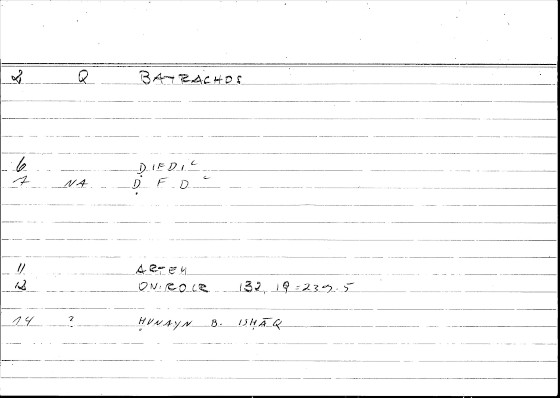 2 Q BATRACHOS
6 ḌIFDIʿ
7 NA Ḍ F D ʿ
11 ARTEM
12 ONIROCR 132, 19 = 237.5
14 ? ḤUNAYN B. ISḤĀQ